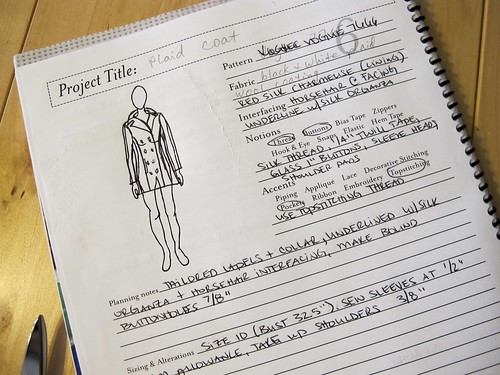 Project Title: plaid coat
Pattern VOGUE 7666
Fabric black + white plaid
wool coating
RED SILK CHARMEUSE (LINING)
Interfacing HORSEHAIR @ FACING
UNDERLINE W/ SILK ORGANZA
Notions
Thread Buttons Bias Tape Zippers
Hook & Eye Snaps Elastic Hem Tape
SILK THREAD, 1/4" TWILL TAPE,
GLASS 1" BUTTONS, SLEEVE HEAD,
SHOULDER PADS
Accents
Piping Applique Lace Decorative Stitching
Pockets Ribbon Embroidery Topstitching
USE TOPSTITCHING THREAD
Planning notes TAILORED LAPELS + COLLAR, UNDERLINED W/ SILK
ORGANZA + HORSEHAIR INTERFACING, MAKE BOUND
BUTTONHOLES 7/8"
Sizing & Alterations SIZE 10 (BUST 32.5"), SEW SLEEVES AT 1/2"
ALLOWANCE, TAKE UP SHOULDERS 3/8"